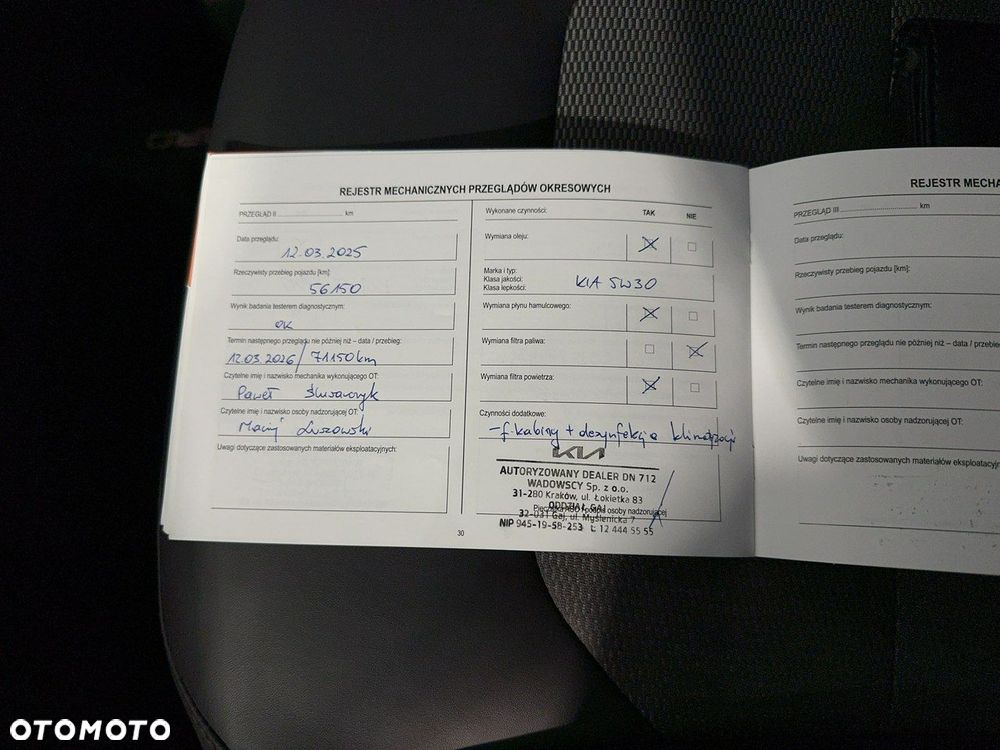 REJESTR MECHANICZNYCH PRZEGLĄDÓW OKRESOWYCH
PRZEGLĄD II .......................... km
Data przeglądu:
12.03.2025
Rzeczywisty przebieg pojazdu [km]:
56150
Wynik badania testerem diagnostycznym:
OK
Termin następnego przeglądu nie później niż – data / przebieg:
12.03.2026 / 71150 km
Czytelne imię i nazwisko mechanika wykonującego OT:
Paweł
Czytelne imię i nazwisko osoby nadzorującej OT:
Maciej
Uwagi dotyczące zastosowanych materiałów eksploatacyjnych:
30
Wykonane czynności: TAK NIE
Wymiana oleju:
Marka i typ:
Klasa jakości:
Klasa lepkości:
KIA 5W30
Wymiana płynu hamulcowego:
Wymiana filtra paliwa:
Wymiana filtra powietrza:
Czynności dodatkowe:
- f. kabiny + dezynfekcja klimatyzacji
KIA
AUTORYZOWANY DEALER DN 712
WADOWSCY Sp. z o.o.
31-280 Kraków, ul. Łokietka 83
ODDZIAŁ GAJ
Pieczątka ASO i podpis osoby nadzorującej
32-031 Gaj, ul. Myślenicka 7
NIP 945-19-58-253 t. 12 444 55 55
REJESTR MECHA
PRZEGLĄD III .......................... km
Data przeglądu:
Rzeczywisty przebieg pojazdu [km]:
Wynik badania testerem diagnostycznym:
Termin następnego przeglądu nie później niż – data / przebieg
Czytelne imię i nazwisko mechanika wykonującego OT:
Czytelne imię i nazwisko osoby nadzorującej OT:
Uwagi dotyczące zastosowanych materiałów eksploatacyj
OTOMOTO